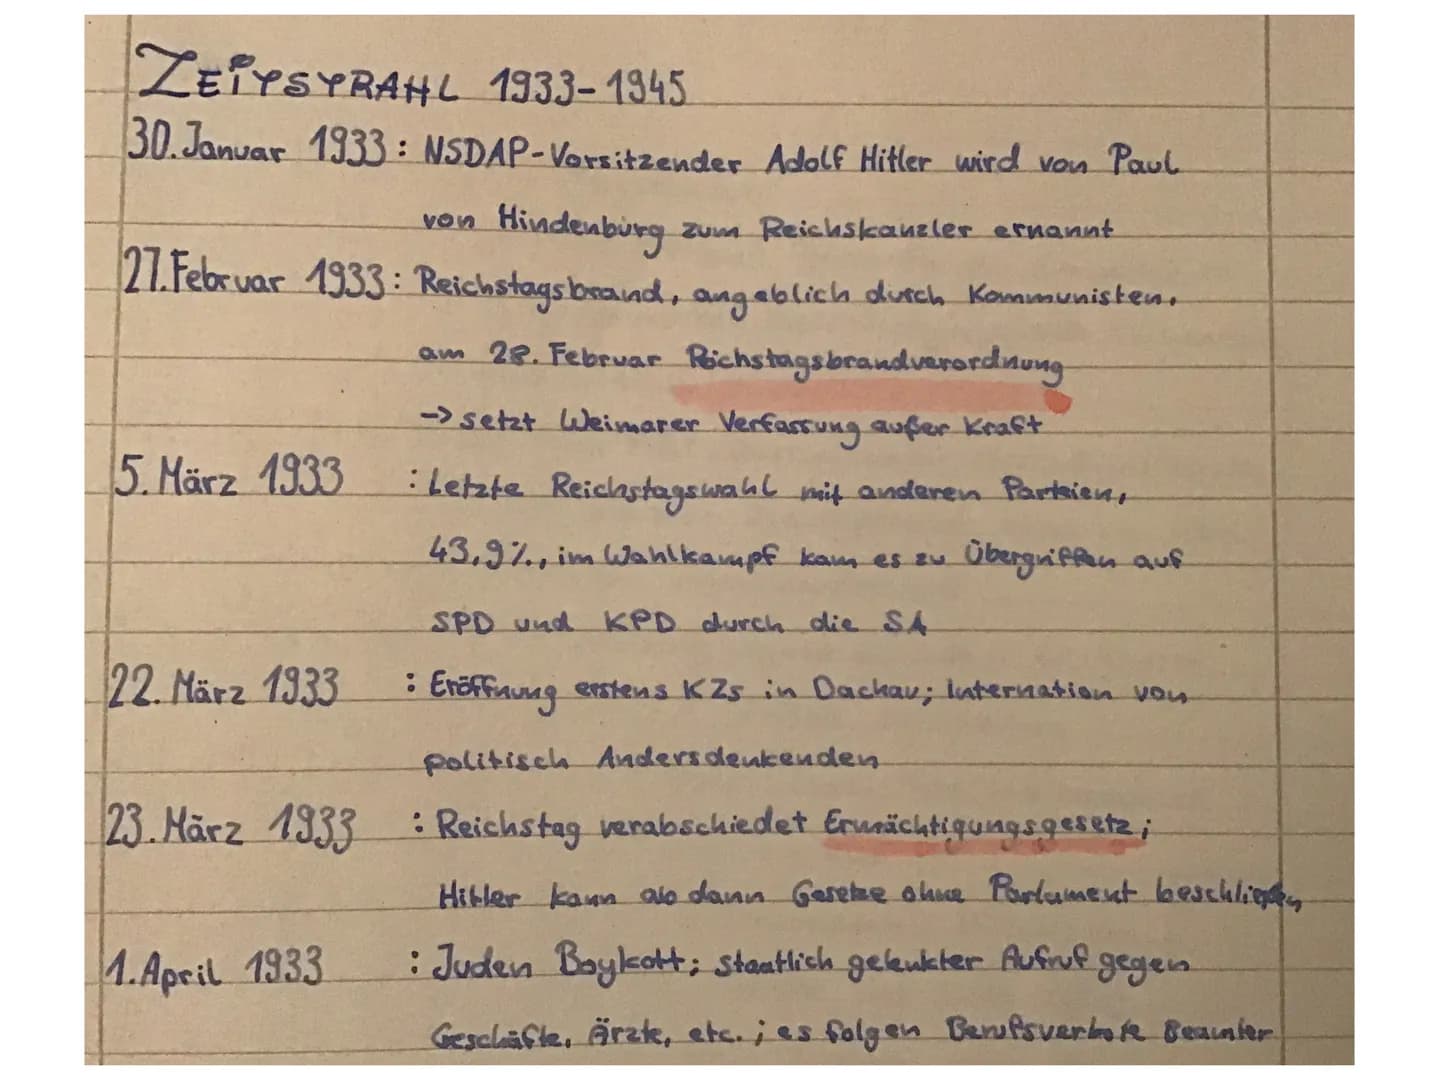 ZEITSTRAHL 1933-1945
30. Januar 1933: NSDAP-Vorsitzender Adolf Hitler wird von Paul
von Hindenburg zum Reichskanzler ernannt
27. Februar 1933: Reichstagsbrand, angeblich durch Kommunisten,
am 28. Februar Reichstagsbrandverordnung
-> setzt Weimarer Verfassung außer Kraft
5. März 1933 : Letzte Reichstagswahl mit anderen Parteien,
43,9%, im Wahlkampf kam es zu Übergriffen auf
SPD und KPD durch die SA
22. März 1933 : Eröffnung erstens KZs in Dachau; Internation von
politisch Andersdenkenden
23. März 1933 : Reichstag verabschiedet Ermächtigungsgesetz;
Hitler kann ab dann Gesetze ohne Parlament beschließen
1. April 1933 : Juden Boykott; staatlich gelenkter Aufruf gegen
Geschäfte, Ärzte, etc.; es folgen Berufsverbote Beamter